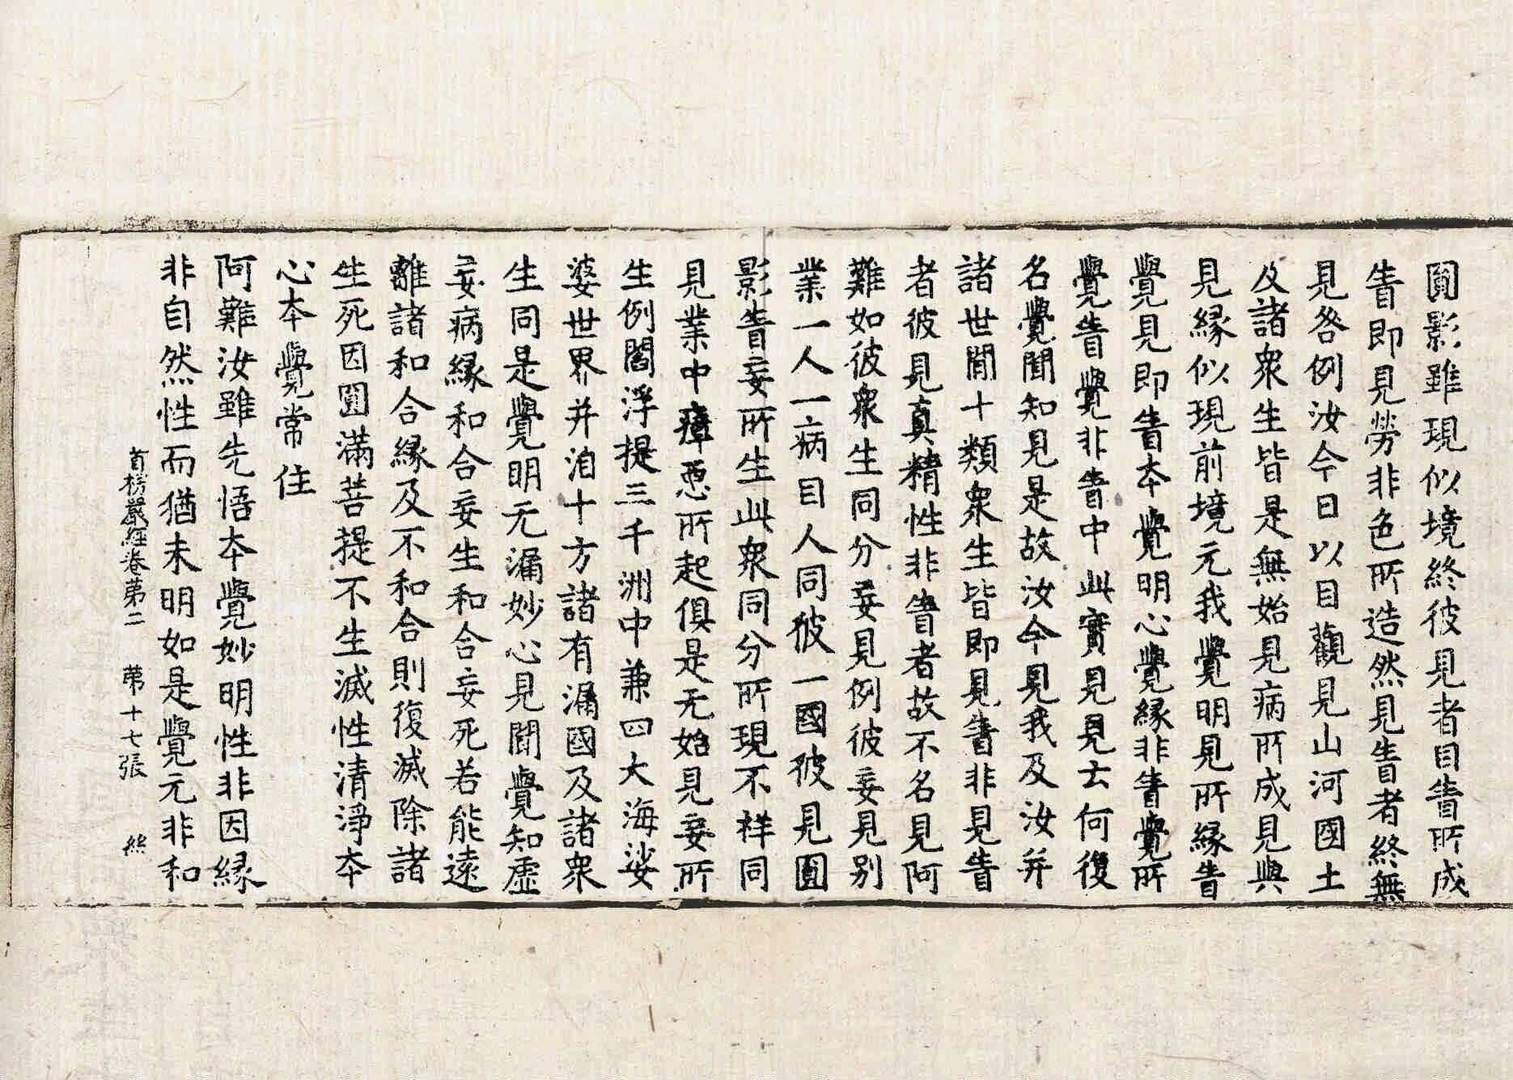 圓影雖現似境終彼見者目眚所成
眚即見勞非色所造然見眚者終無
見咎例汝今日以目觀見山河國土
及諸衆生皆是無始見病所成見與
見縁似現前境元我覺明見所縁眚
覺見即眚本覺明心覺縁非眚覺所
覺眚覺非眚中此實見見云何復
名覺聞知見是故汝今見我及汝并
諸世間十類衆生皆即見眚非見眚
者彼見真精性非眚者故不名見阿
難如彼衆生同分妄見例彼妄見別
業一人一病目人同彼一國彼見圓
影眚妄所生此衆同分所現不祥同
見業中瘴惡所起俱是无始見妄所
生例閻浮提三千洲中兼四大海娑
婆世界并洎十方諸有漏國及諸衆
生同是覺明无漏妙心見聞覺知虛
妄病縁和合妄生和合妄死若能遠
離諸和合縁及不和合則復滅除諸
生死因圓滿菩提不生滅性清淨本
心本覺常住
阿難汝雖先悟本覺妙明性非因縁
非自然性而猶未明如是覺元非和
首楞嚴經卷第二 第十七張 絲